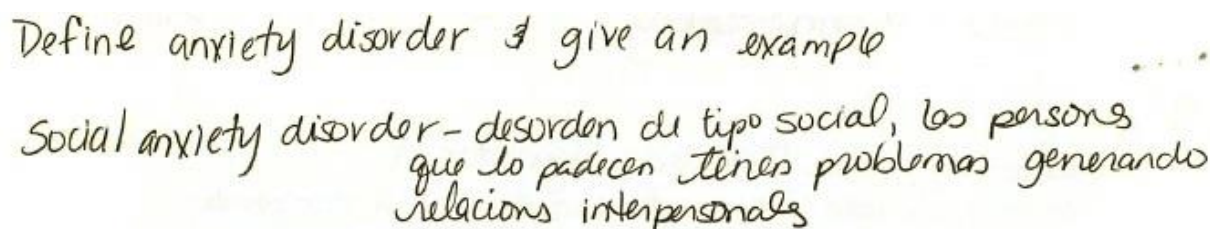 Define anxiety disorder & give an example
Social anxiety disorder - desorden de tipo social, las persons
que lo padecen tienen problemas generando
relacions interpersonals